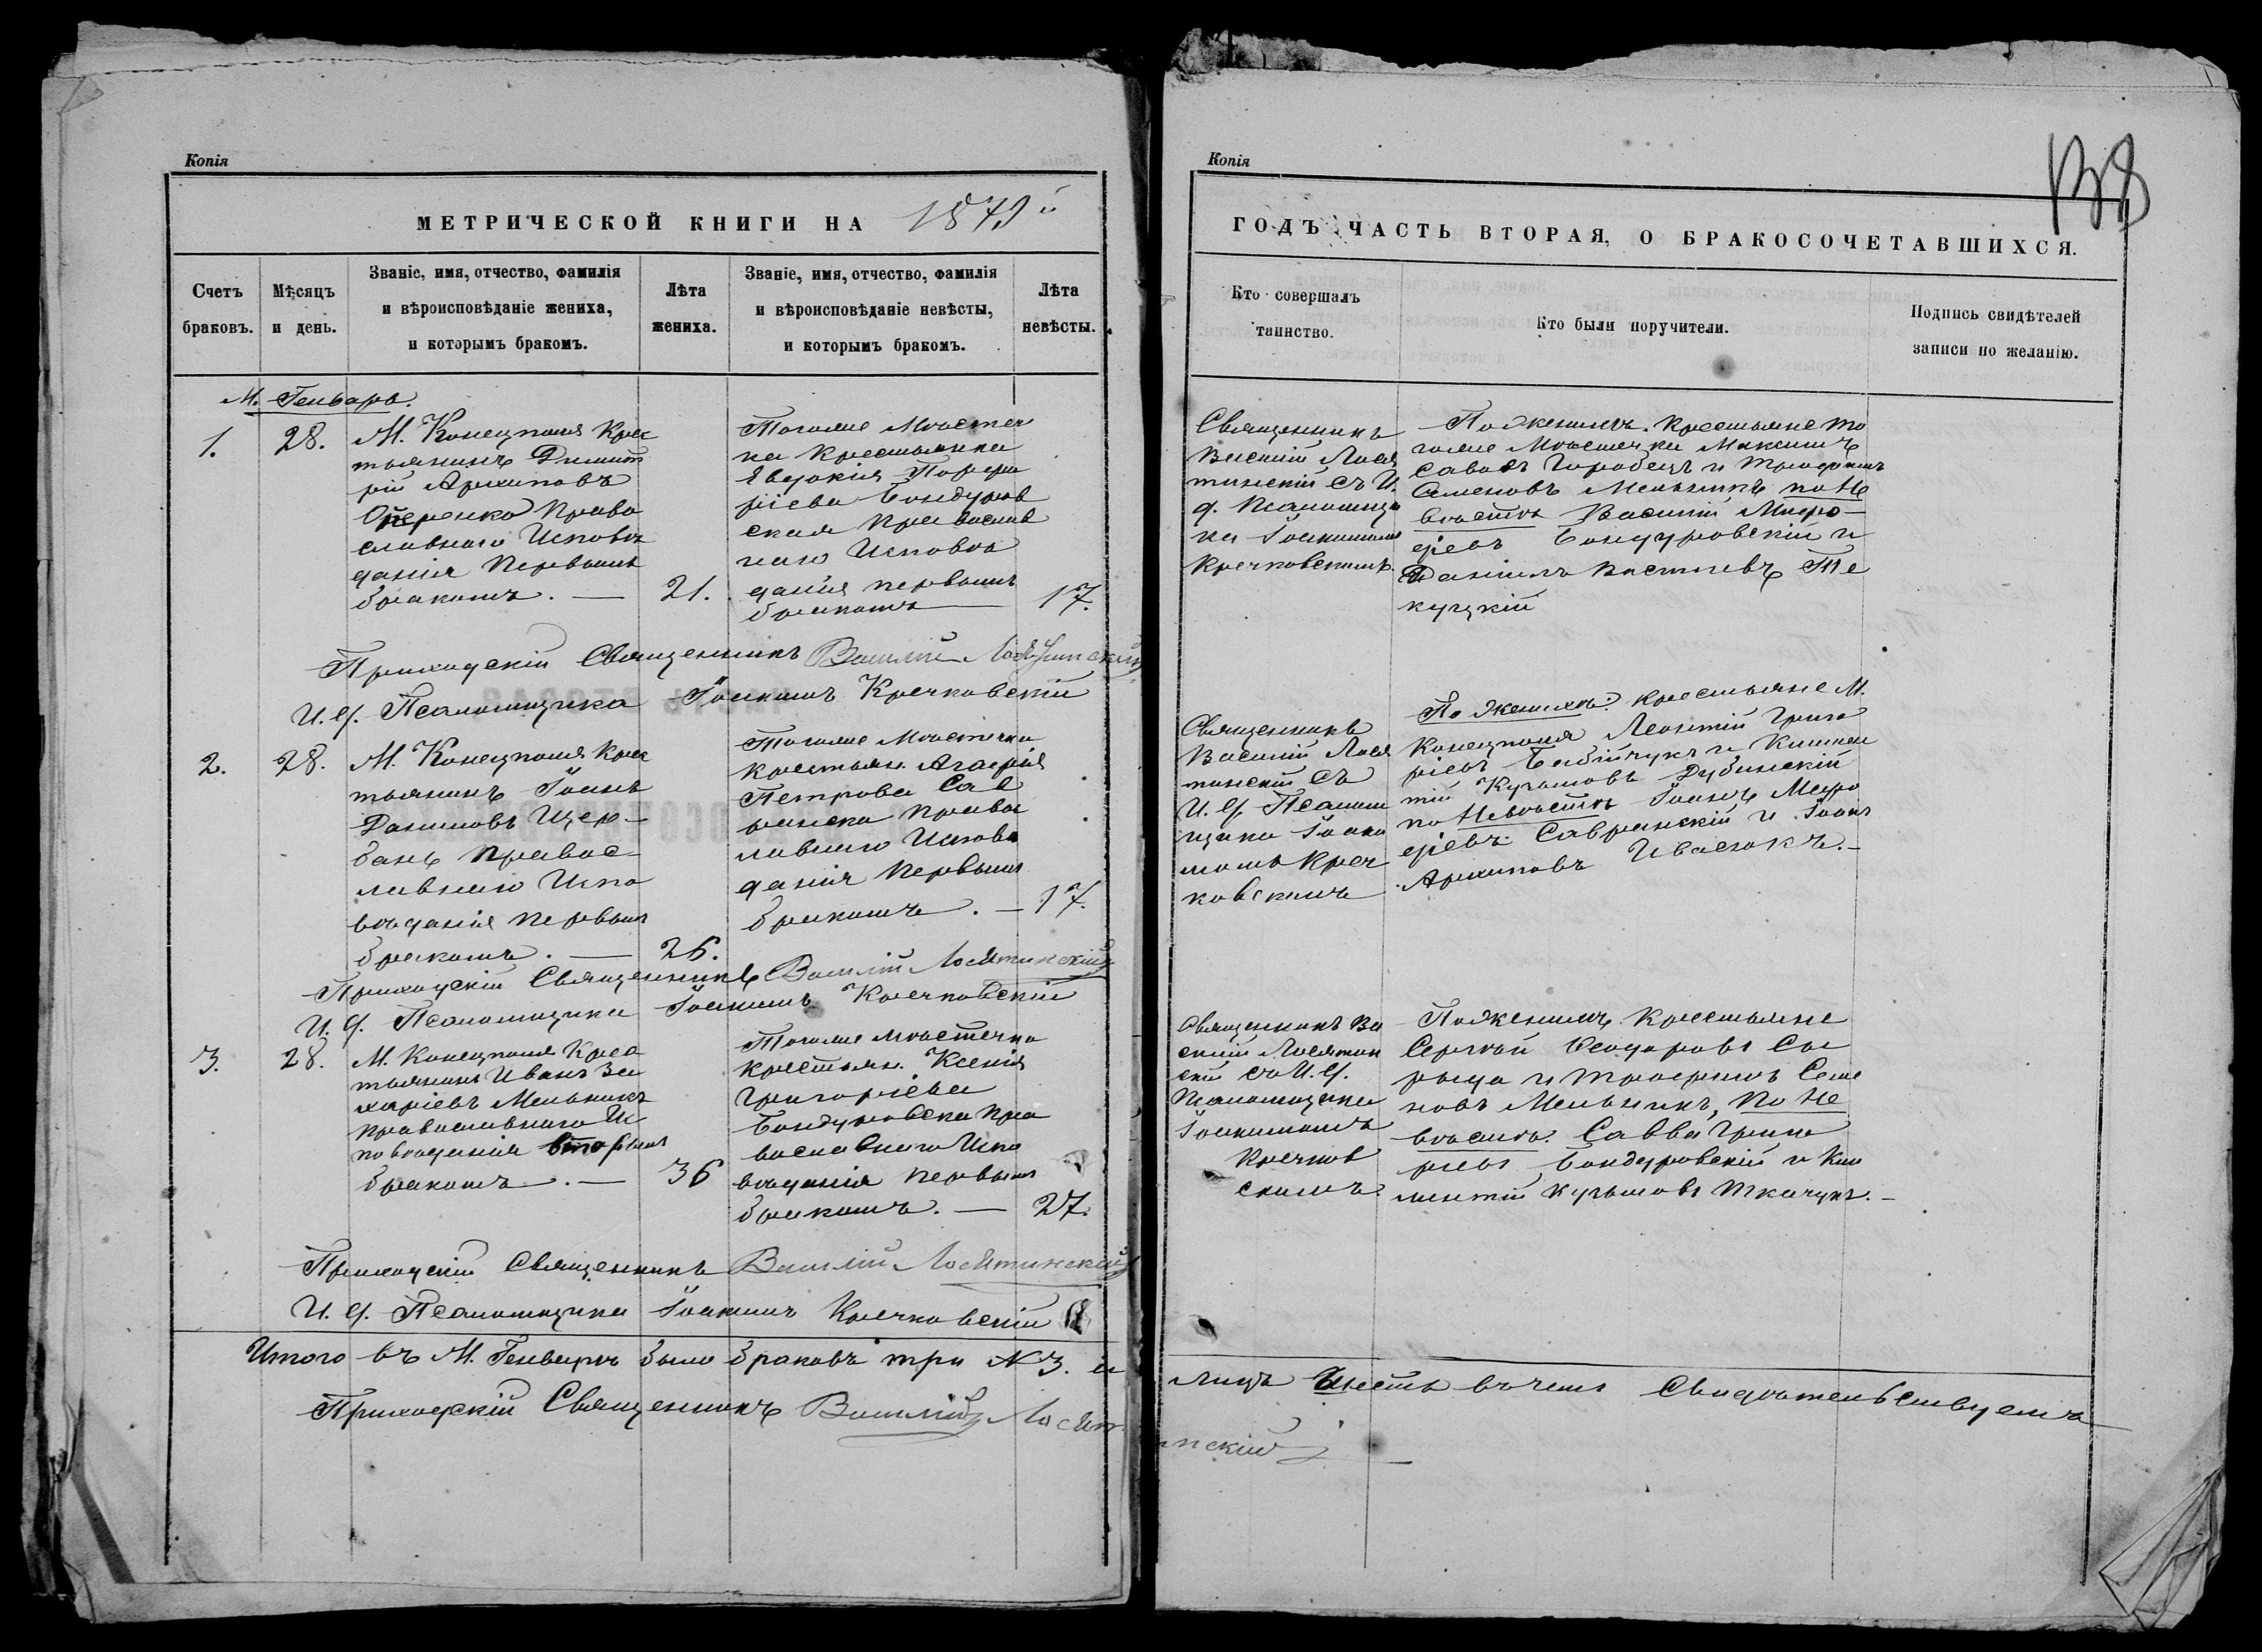 Копія
МЕТРИЧЕСКОЙ КНИГИ НА 187
Счетъ браковъ.
Мѣсяцъ и день.
Званіе, имя, отчество, фамилія и вѣроисповѣданіе жениха, и которымъ бракомъ.
Лѣта жениха.
Званіе, имя, отчество, фамилія и вѣроисповѣданіе невѣсты, и которымъ бракомъ.
Лѣта невѣсты.
М. Генварь.
1.
28.
М. Конецполя Крес
тьянинъ Димит
рій Архиповъ
Право
славнаго Исповѣ
данія Первымъ
бракомъ. —
21.
Тогоже Мѣстеч
ка Крестьянка
Евдокія Порфи
ріева Бондуров
ская Православ
наго Исповѣ
данія первымъ
бракомъ —
17.
Приходскій Священникъ Василій Лосятинскій
И. д. Псаломщика Іоакимъ Кречковскій
2.
28.
М. Конецполя Крес
тьянинъ Іоанъ
Даниловъ Щер-
банъ Правос-
лавнаго Испо
вѣданія первымъ
бракомъ. —
26.
Тогоже Мѣстечка
Крестьян. Агафія
Петрова Сав
ранска Правос
лавнаго Исповѣ
данія Первымъ
бракомъ. —
17.
Приходскій Священникъ Василій Лосятинскій
И. д. Псаломщика Іоакимъ Кречковскій
3.
28.
М. Конецполя Крес
тьянинъ Иванъ За
харіевъ Мельникъ
православнаго Ис
повѣданія вторымъ
бракомъ. —
36
Тогоже мѣстечка
крестьян. Ксенія
Григоріева
Бондуровска Пра
вославного Испо
вѣданія Первымъ
бракомъ. —
27.
Приходскій Священникъ Василій Лосятинскій
И. д. Псаломщика Іоакимъ Кречковскій
Итого въ М. Генварѣ было браковъ три № 3. а
Приходскій Священникъ Василій Лосят
Копія
138
ГОДЪ ЧАСТЬ ВТОРАЯ, О БРАКОСОЧЕТАВШИХСЯ.
Кто совершалъ таинство.
Кто были поручители.
Подпись свидѣтелей записи по желанію.
Священникъ
Василій Лося
тинскій съ И.
д. Псаломщи
ка Іоакимомъ
Кречковскимъ.
По Женихѣ. Крестьяне то
гоже Мѣстечка Максимъ
Савовъ Горобецъ и Трофимъ
Семеновъ Мельникъ по Не
вѣстѣ Василій
Бондуровскій и
Даніилъ Те
куцкій
Священникъ
Василій Лося
тинскій съ
И. д. Псалом
щика Іоаки
момъ Креч
ковскимъ
По Женихѣ: крестьяне М.
Конецполя Леонтій Григо
ріевъ Бабійчукъ и Климен
тій Кузьмовъ Дубинскій
по Невѣстѣ Іоанъ
Савранскій и Іоанъ
Архиповъ Ивасюкъ. —
Священникъ Ва
силій Лосятин
скій съ И. д.
Псаломщика
Іоакимомъ
Кречков
скимъ.
По Женихѣ. Крестьяне
Сергѣй Ѳеодоровъ
и Трофимъ Семе
новъ Мельникъ, По Не
вѣстѣ. Савва Григо
ріевъ Бондуровскій и Кли
ментій Кузьмовъ Ткачукъ. —
лицъ Шесть въ чемъ Свидѣтельствуемъ
инскій